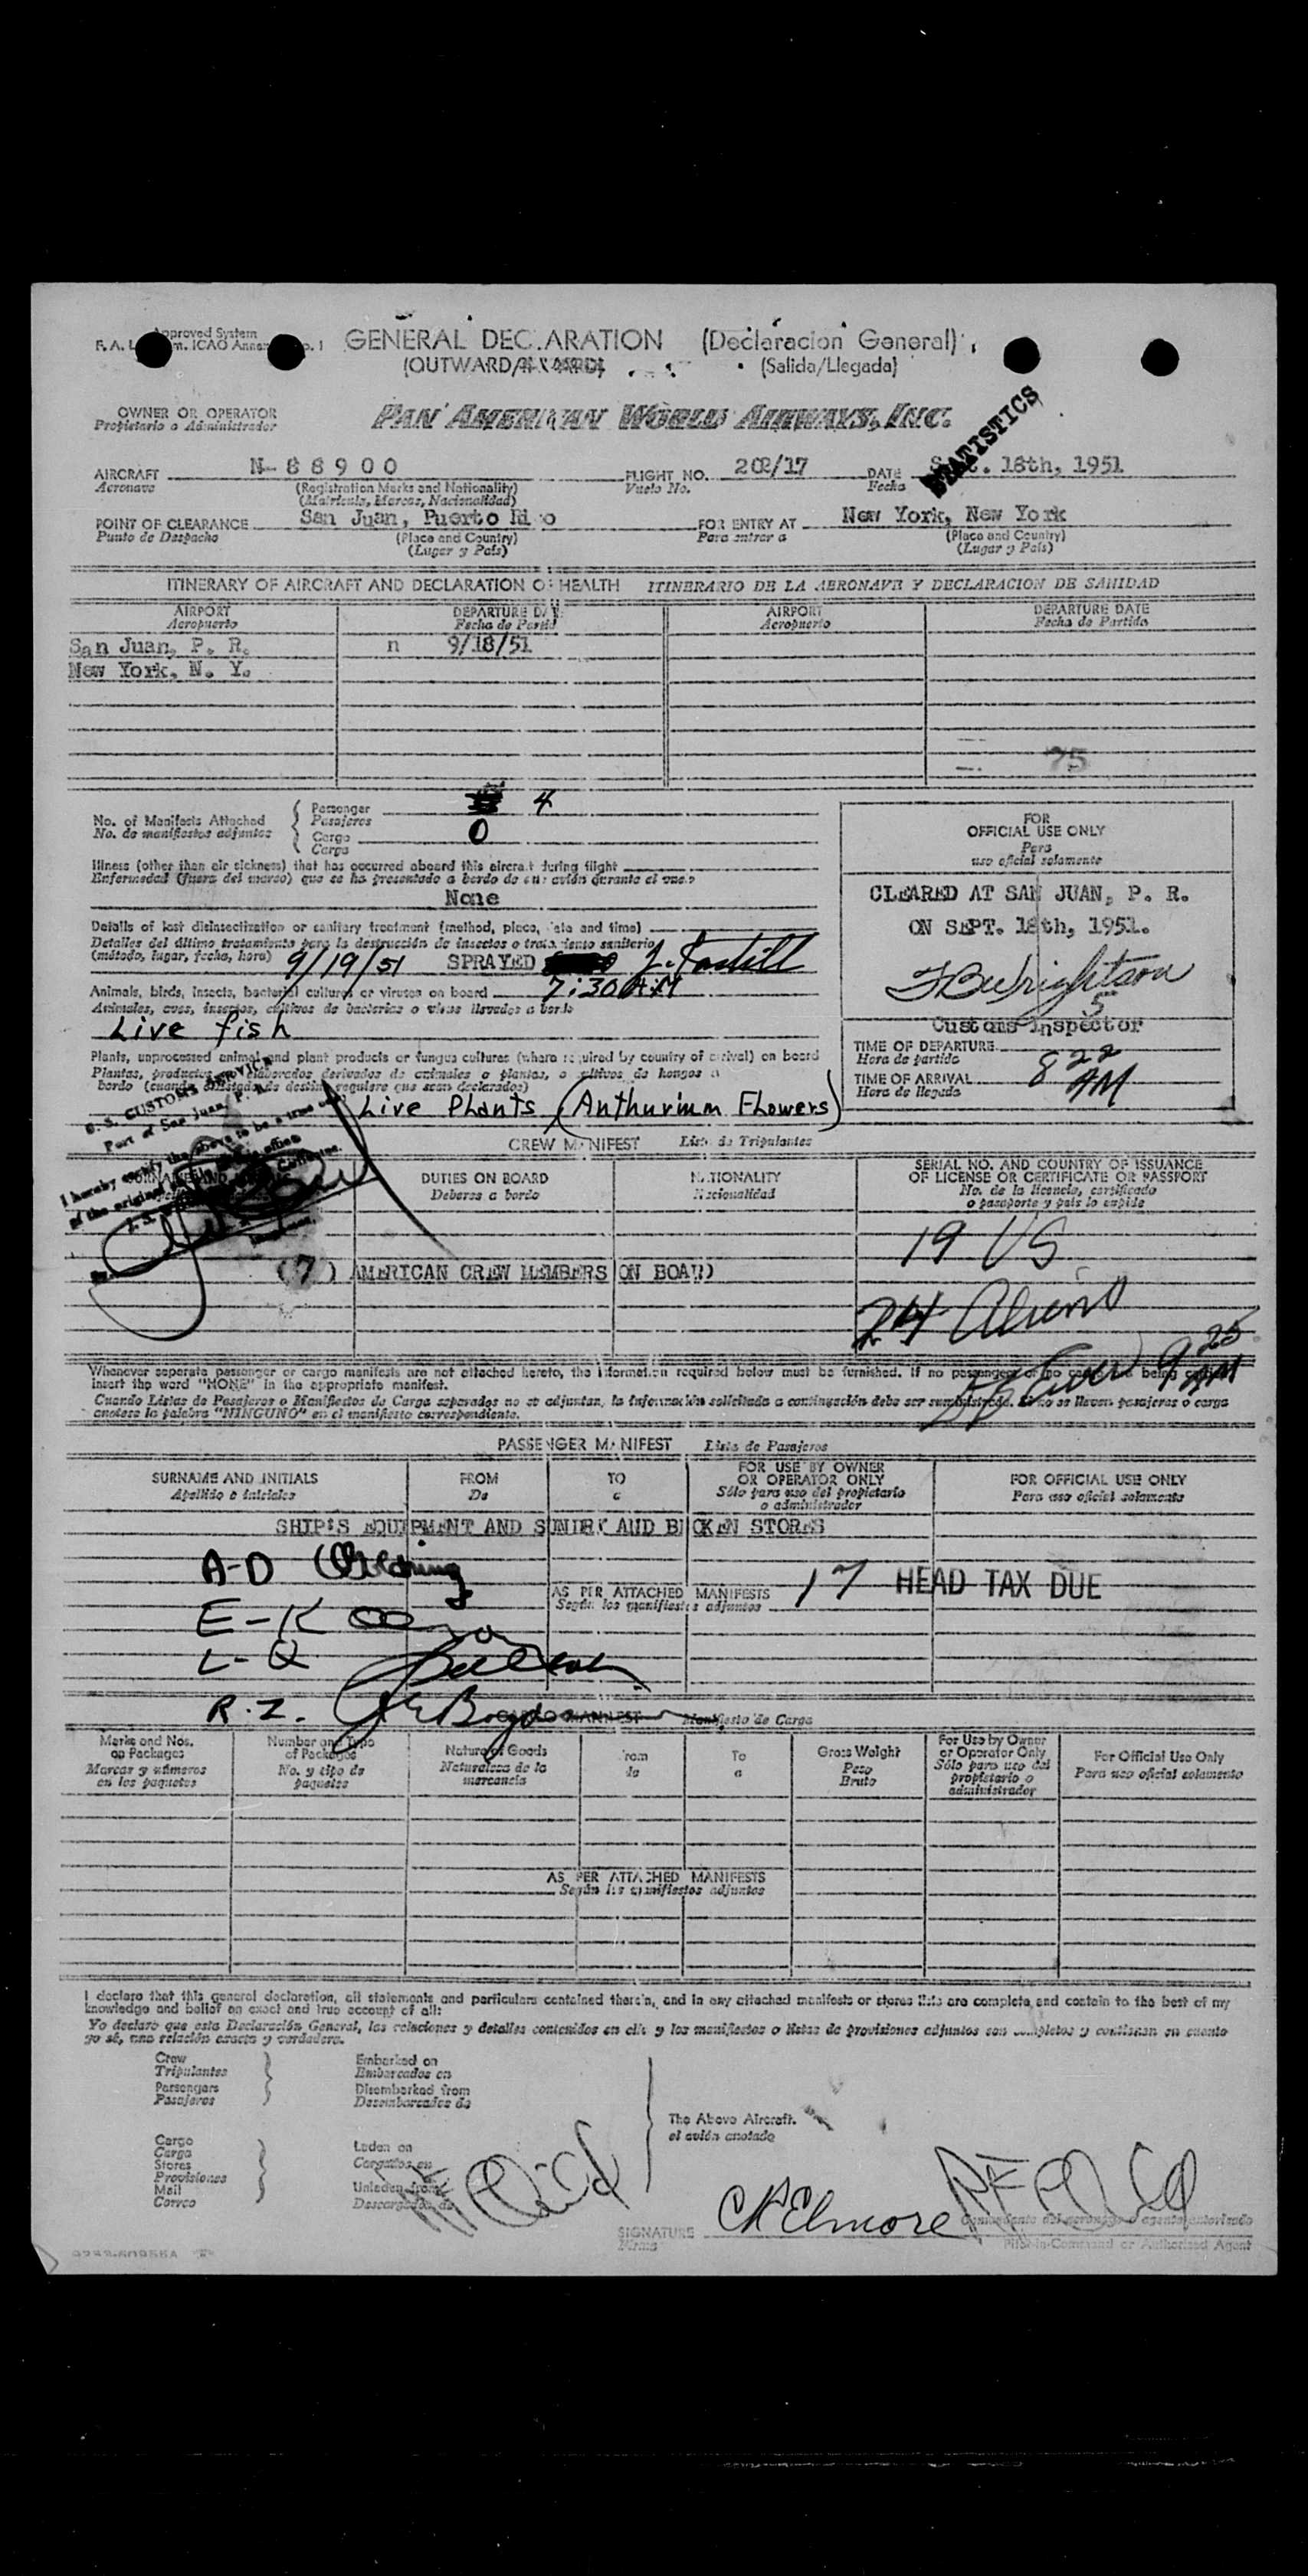 Approved System
GENERAL DECLARATION (Declaracion General)
(OUTWARD/ (Salida/Llegada)
OWNER OR OPERATOR
Propietario o Administrador
PAN AMERICAN WORLD AIRWAYS, INC.
STATISTICS
AIRCRAFT N-88900 FLIGHT NO. 202/17 DATE Sept. 18th, 1951
Aeronave (Registration Marks and Nationality) Vuelo No. Fecha
(Matricula, Marcas, Nacionalidad)
POINT OF CLEARANCE San Juan, Puerto Rico FOR ENTRY AT New York, New York
Punto de Despacho (Place and Country) Para entrar a (Place and Country)
(Lugar y País) (Lugar y País)
ITINERARY OF AIRCRAFT AND DECLARATION OF HEALTH ITINERARIO DE LA AERONAVE Y DECLARACION DE SANIDAD
AIRPORT DEPARTURE DATE AIRPORT DEPARTURE DATE
Aeropuerto Fecha de Partida Aeropuerto Fecha de Partida
San Juan, P. R. n 9/18/51
New York, N. Y.
75
No. of Manifests Attached
No. de manifiestos adjuntos
Passenger 4
Pasajeros
Cargo 0
Carga
Illness (other than air sickness) that has occurred aboard this aircraft during flight
Enfermedad (fuera del mareo) que se ha presentado a bordo de este avión durante el vuelo
None
Details of last disinsectization or sanitary treatment (method, place, date and time)
Detalles del último tratamiento para la destrucción de insectos o tratamiento sanitario
(método, lugar, fecha, hora) 9/19/51 SPRAYED
7:30 AM
Animals, birds, insects, bacterial cultures or viruses on board
Animales, aves, insectos, cultivos de bacterias o virus llevados a bordo
Live fish
Plants, unprocessed animal and plant products or fungus cultures (where required by country of arrival) on board
Plantas, productos no elaborados derivados de animales o plantas, o cultivos de hongos a
bordo (cuando el Estado de destino requiere que sean declarados)
Live Plants (Anthurium Flowers)
FOR
OFFICIAL USE ONLY
Para
uso oficial solamente
CLEARED AT SAN JUAN, P. R.
ON SEPT. 18th, 1951.
FBWrightson
5
Customs Inspector
TIME OF DEPARTURE
Hora de partida
TIME OF ARRIVAL 8 22 AM
Hora de llegada
U. S. CUSTOMS SERVICE
Port of San Juan, P. R.
I hereby certify the above to be a true copy
of the original
CREW MANIFEST Lista de Tripulantes
DUTIES ON BOARD NATIONALITY SERIAL NO. AND COUNTRY OF ISSUANCE
Deberes a bordo Nacionalidad OF LICENSE OR CERTIFICATE OR PASSPORT
No. de la licencia, certificado
o pasaporte y país lo expide
19 US
(7) AMERICAN CREW MEMBERS ON BOARD
24 Aliens
9 25 AM
Whenever separate passenger or cargo manifests are not attached hereto, the information required below must be furnished. If no passengers or no cargo are being carried
insert the word "NONE" in the appropriate manifest.
Cuando Listas de Pasajeros o Manifiestos de Carga separados no se adjuntan, la información solicitada a continuación debe ser suministrada. Si no se llevan pasajeros o carga
anótese la palabra "NINGUNO" en el manifiesto correspondiente.
PASSENGER MANIFEST Lista de Pasajeros
SURNAME AND INITIALS FROM TO FOR USE BY OWNER FOR OFFICIAL USE ONLY
Apellido e iniciales De a OR OPERATOR ONLY Para uso oficial solamente
Sólo para uso del propietario
o administrador
SHIP'S EQUIPMENT AND SUNDRY AND BROKEN STORES
A-D
AS PER ATTACHED MANIFESTS 17 HEAD TAX DUE
Según los manifiestos adjuntos
E-K
L-Q
R-Z.
CARGO MANIFEST Manifiesto de Carga
Marks and Nos. Number and Type Nature of Goods From To Gross Weight For Use by Owner For Official Use Only
on Packages of Packages Naturaleza de la de a Peso or Operator Only Para uso oficial solamente
Marcas y números No. y tipo de mercancia Bruto Sólo para uso del
en los paquetes paquetes propietario o
administrador
AS PER ATTACHED MANIFESTS
Según los manifiestos adjuntos
I declare that this general declaration, all statements and particulars contained therein, and in any attached manifests or stores lists are complete and contain to the best of my
knowledge and belief an exact and true account of all:
Yo declaro que esta Declaración General, las relaciones y detalles contenidos en ella y los manifiestos o listas de provisiones adjuntos son completos y contienen en cuanto
yo sé, una relación exacta y verdadera.
Crew Embarked on
Tripulantes Embarcados en
Passengers Disembarked from
Pasajeros Desembarcados de
The Above Aircraft.
el avión anotado
Cargo Laden on
Carga Cargados en
Stores
Provisiones
Mail Unladen from
Correo Descargados de
SIGNATURE CAElmore
Firma
Comandante del aeronave o agente autorizado
Pilot-in-Command or Authorized Agent